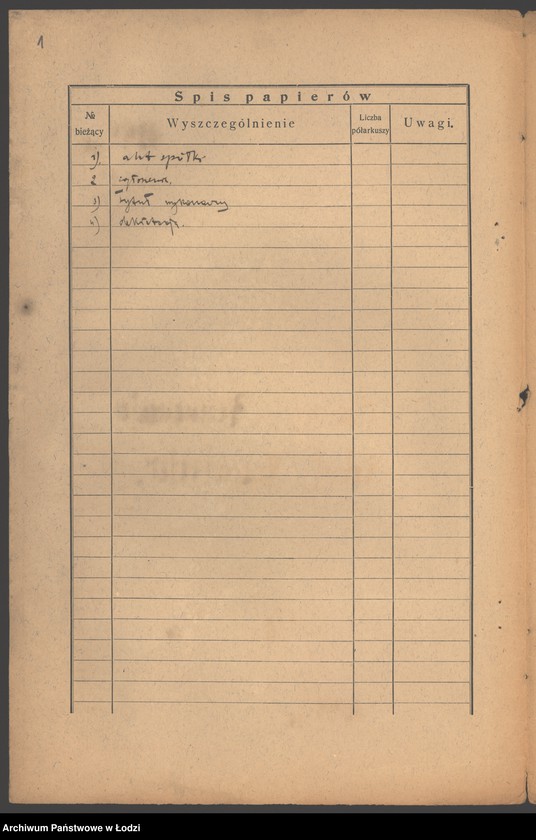 1
Spis papierów
№ bieżący
Wyszczególnienie
Liczba półarkuszy
Uwagi.
1). akt spółki
2 zgłoszenie.
3) tytuł wykonawczy
4) deklaracje.
Archiwum Państwowe w Łodzi